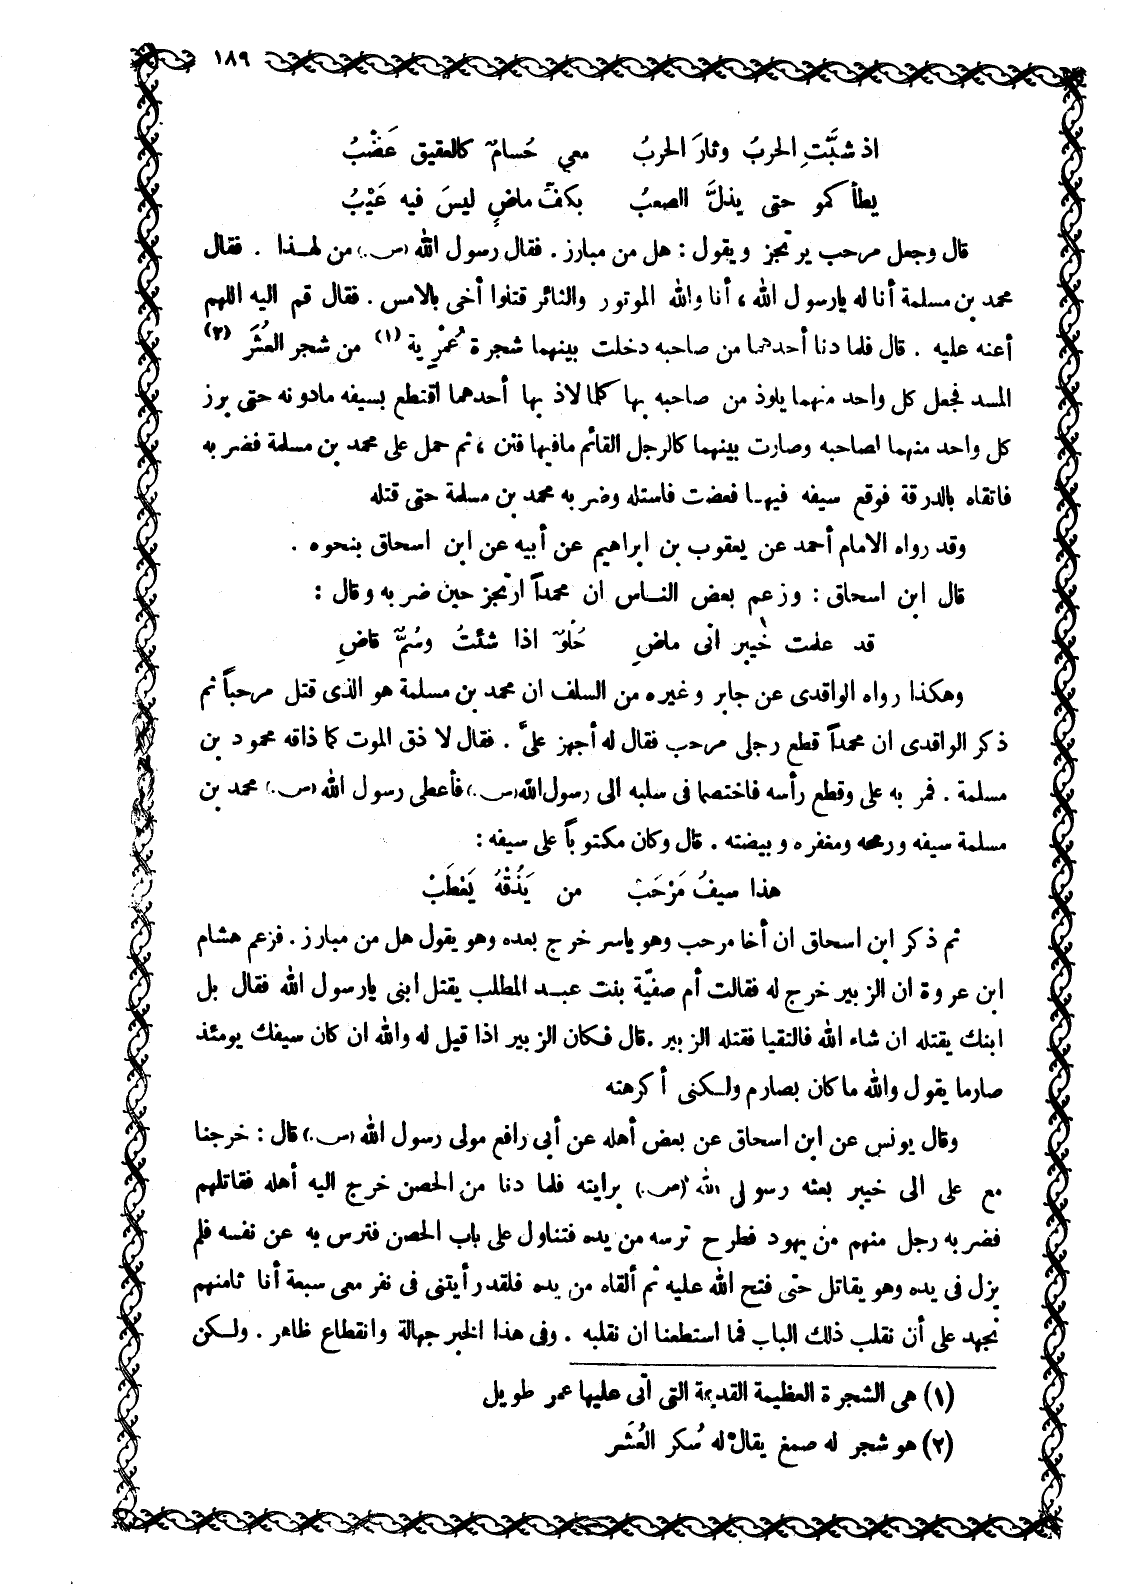 ١٨٩
اذ شبَّتِ الحربُ وثارَ الحربُ معي حُسامٌ كالعقيق عَضْبُ
يطأكمو حتى يذلَّ الصعبُ بكفّ ماضٍ ليسَ فيه عَيْبُ
قال وجعل مرحب يرتجز ويقول : هل من مبارز . فقال رسول الله (ص.) من لهـذا . فقال
محمد بن مسلمة أنا له يارسول الله ، أنا والله الموتور والثائر قتلوا أخى بالامس . فقال قم اليه اللهم
أعنه عليه . قال فلما دنا أحدهما من صاحبه دخلت بينهما شجرة عُمْرِية (١) من شجر العُشَر (٢)
المسد فجعل كل واحد منهما يلوذ من صاحبه بها كلما لاذ بها أحدهما اقتطع بسيفه مادونه حتى برز
كل واحد منهما لصاحبه وصارت بينهما كالرجل القائم مافيها فنن ، ثم حمل على محمد بن مسلمة فضربه
فاتقاه بالدرقة فوقع سيفه فيهـا فعضت فاستله وضربه محمد بن مسلمة حتى قتله
وقد رواه الامام أحمد عن يعقوب بن ابراهيم عن أبيه عن ابن اسحاق بنحوه .
قال ابن اسحاق : وزعم بعض النـاس ان محمداً ارتجز حين ضربه وقال :
قد علمت خيبر انى ماضِ حُلوٌ اذا شئتُ وسُمٌّ قاضِ
وهكذا رواه الواقدى عن جابر وغيره من السلف ان محمد بن مسلمة هو الذى قتل مرحباً ثم
ذكر الواقدى ان محمداً قطع رجلى مرحب فقال له أجهز علىَّ . فقال لا ذق الموت كما ذاقه محمود بن
مسلمة . فمر به على وقطع رأسه فاختصما فى سلبه الى رسول الله (ص.) فأعطى رسول الله (ص.) محمد بن
مسلمة سيفه ورمحه ومغفره وبيضته . قال وكان مكتوباً على سيفه :
هذا سيفُ مَرْحَبْ من يَذُقْهُ يَعْطَبْ
ثم ذكر ابن اسحاق ان أخا مرحب وهو ياسر خرج بعده وهو يقول هل من مبارز . فزعم هشام
ابن عروة ان الزبير خرج له فقالت أم صفيّة بنت عبـد المطلب يقتل ابنى يارسول الله فقال بل
ابنك يقتله ان شاء الله فالتقيا فقتله الزبير . قال فـكان الزبير اذا قيل له والله ان كان سيفك يومئذ
صارما يقول والله ماكان بصارم ولـكنى أكرهته
وقال يونس عن ابن اسحاق عن بعض أهله عن أبى رافع مولى رسول الله (ص.) قال : خرجنا
مع على الى خيبر بعثه رسول الله (ص.) برايته فلما دنا من الحصن خرج اليه أهله فقاتلهم
فضربه رجل منهم من يهود فطرح ترسه من يده فتناول على باب الحصن فترس به عن نفسه فلم
يزل فى يده وهو يقاتل حتى فتح الله عليه ثم ألقاه من يده فلقد رأيتنى فى نفر معى سبعة أنا ثامنهم
نجهد على أن نقلب ذلك الباب فما استطعنا ان نقلبه . وفى هذا الخبر جهالة وانقطاع ظاهر . ولـكن
(١) هى الشجرة العظيمة القديمة التى أتى عليها عمر طويل
(٢) هو شجر له صمغ يقال له سُكر العُشَر